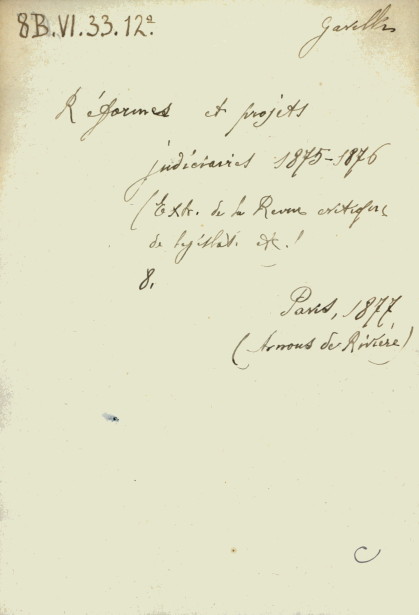 8B.VI.33.12ª
Réformes et projets
judiciaires 1875-1876
(Extr. de la Revue critique
de législat. etc.!
8.
Paris, 1877
(Arnous de Rivière)
C